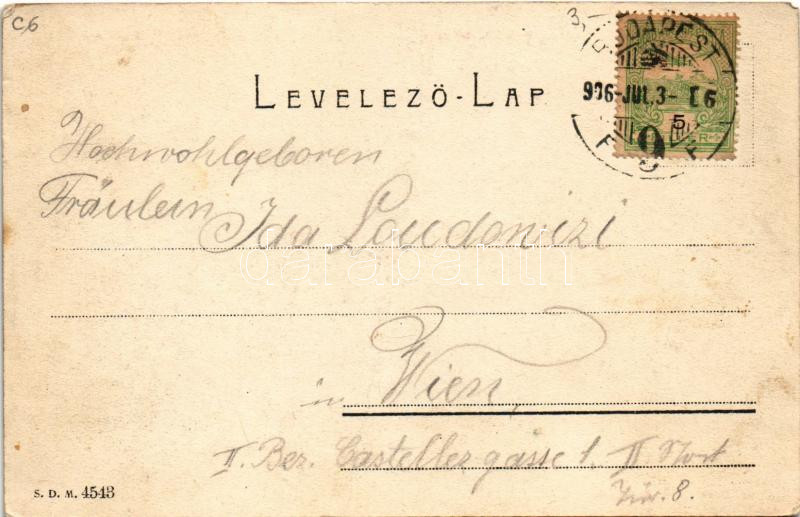 C6
3,
BUDAPEST
LEVELEZŐ-LAP
906-JUL.3- E6
5
9
F F
Hochwohlgeboren
Fräulein Ida
darabanth
in Wien,
II. Bez. Castellezgasse 1, II Stock
8.
S. D. M. 4543